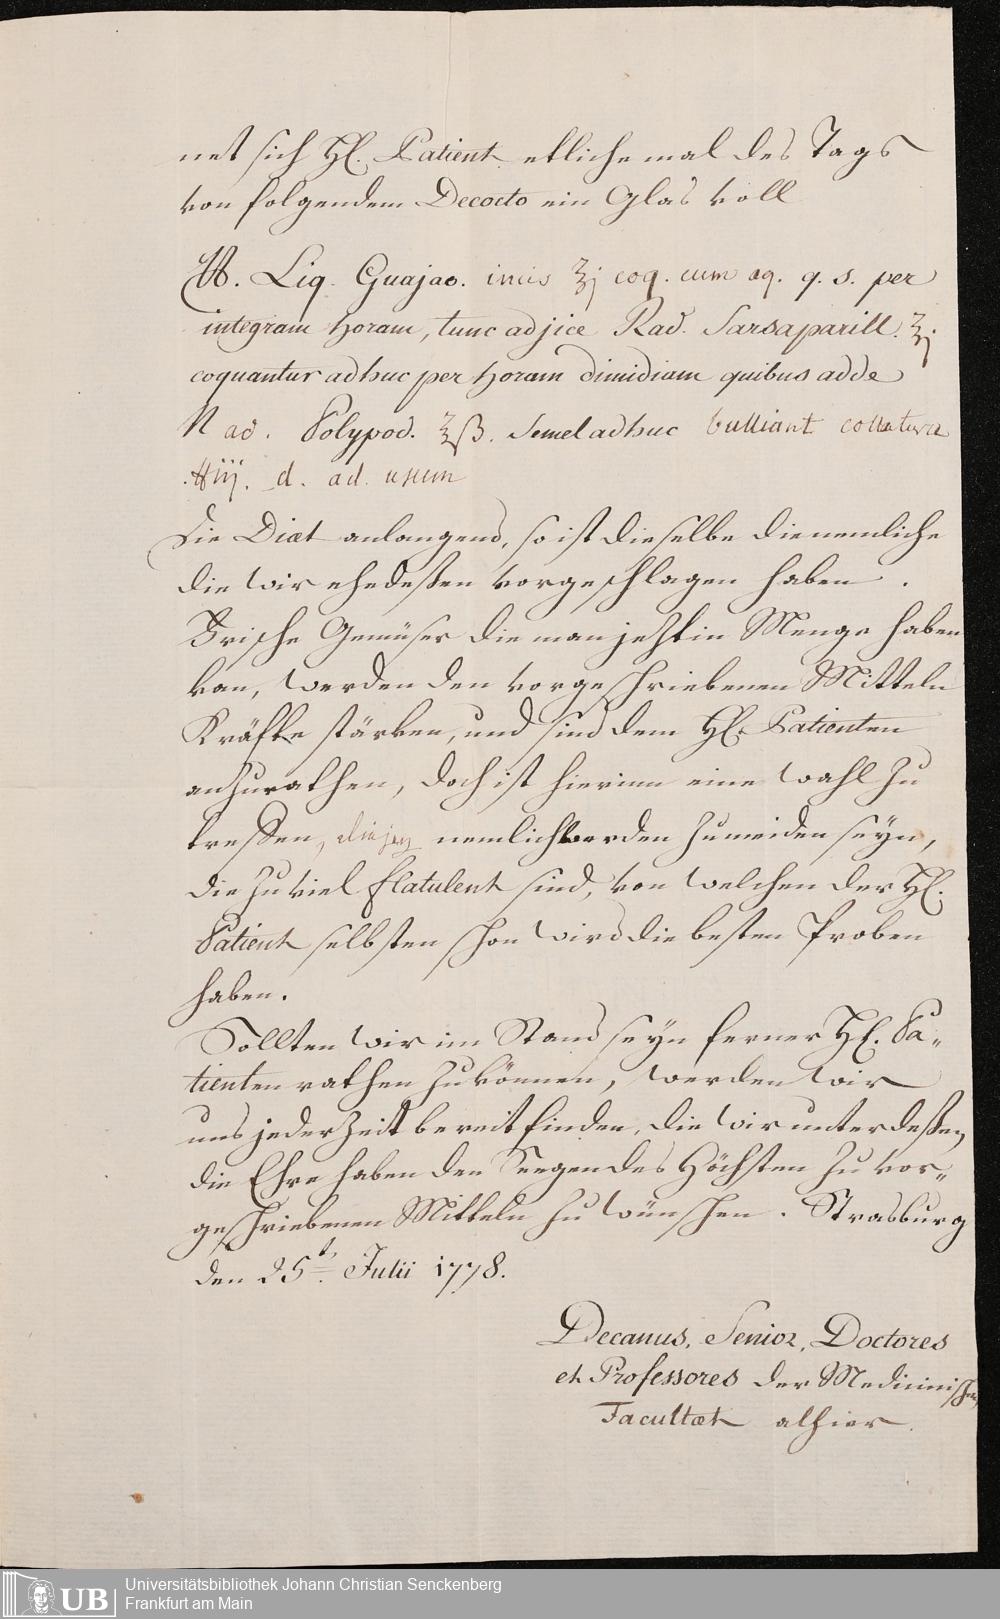 net sich H. Patient etliche mal des Tags
von folgendem Decocto ein Glas voll
Rx. Lig. Guajac. incis ℥j coq. cum aq. q. s. per
integram horam, tunc adjice Rad. Sarsaparill. ℥j
coquantur adhuc per horam dimidiam quibus adde
Rad. Polypod. ℥ß. Semel adhuc bulliant colatura
℔iij. d. ad usum
Die Diæt anlangend, so ist dieselbe die nemliche
die wir ehedeßen vorgeschlagen haben.
Frische Gemüser die man jetzt in Menge haben
kan, werden den vorgeschriebenen Mitteln
Kräfte stärken, und sind dem H. Patienten
anzurathen, doch ist hierinn eine Wahl zu
treffen, diejen nemlich werden zu meiden seyn,
die zu viel flatulent sind, von welchen der H.
Patient selbsten schon wird die besten Proben
haben.
Sollten wir im Stand seyn ferner H. Pa-
tienten rathen zu können, werden wir
uns jederzeit bereit finden, die wir unterdeßen
die Ehre haben den Seegen des Höchsten zu vor-
geschriebenen Mitteln zu wünschen. Strasburg
den 25t. Julii 1778.
Decanus, Senior, Doctores
et Professores der Medicinischen
Facultæt alhier.
Universitätsbibliothek Johann Christian Senckenberg
Frankfurt am Main
UB